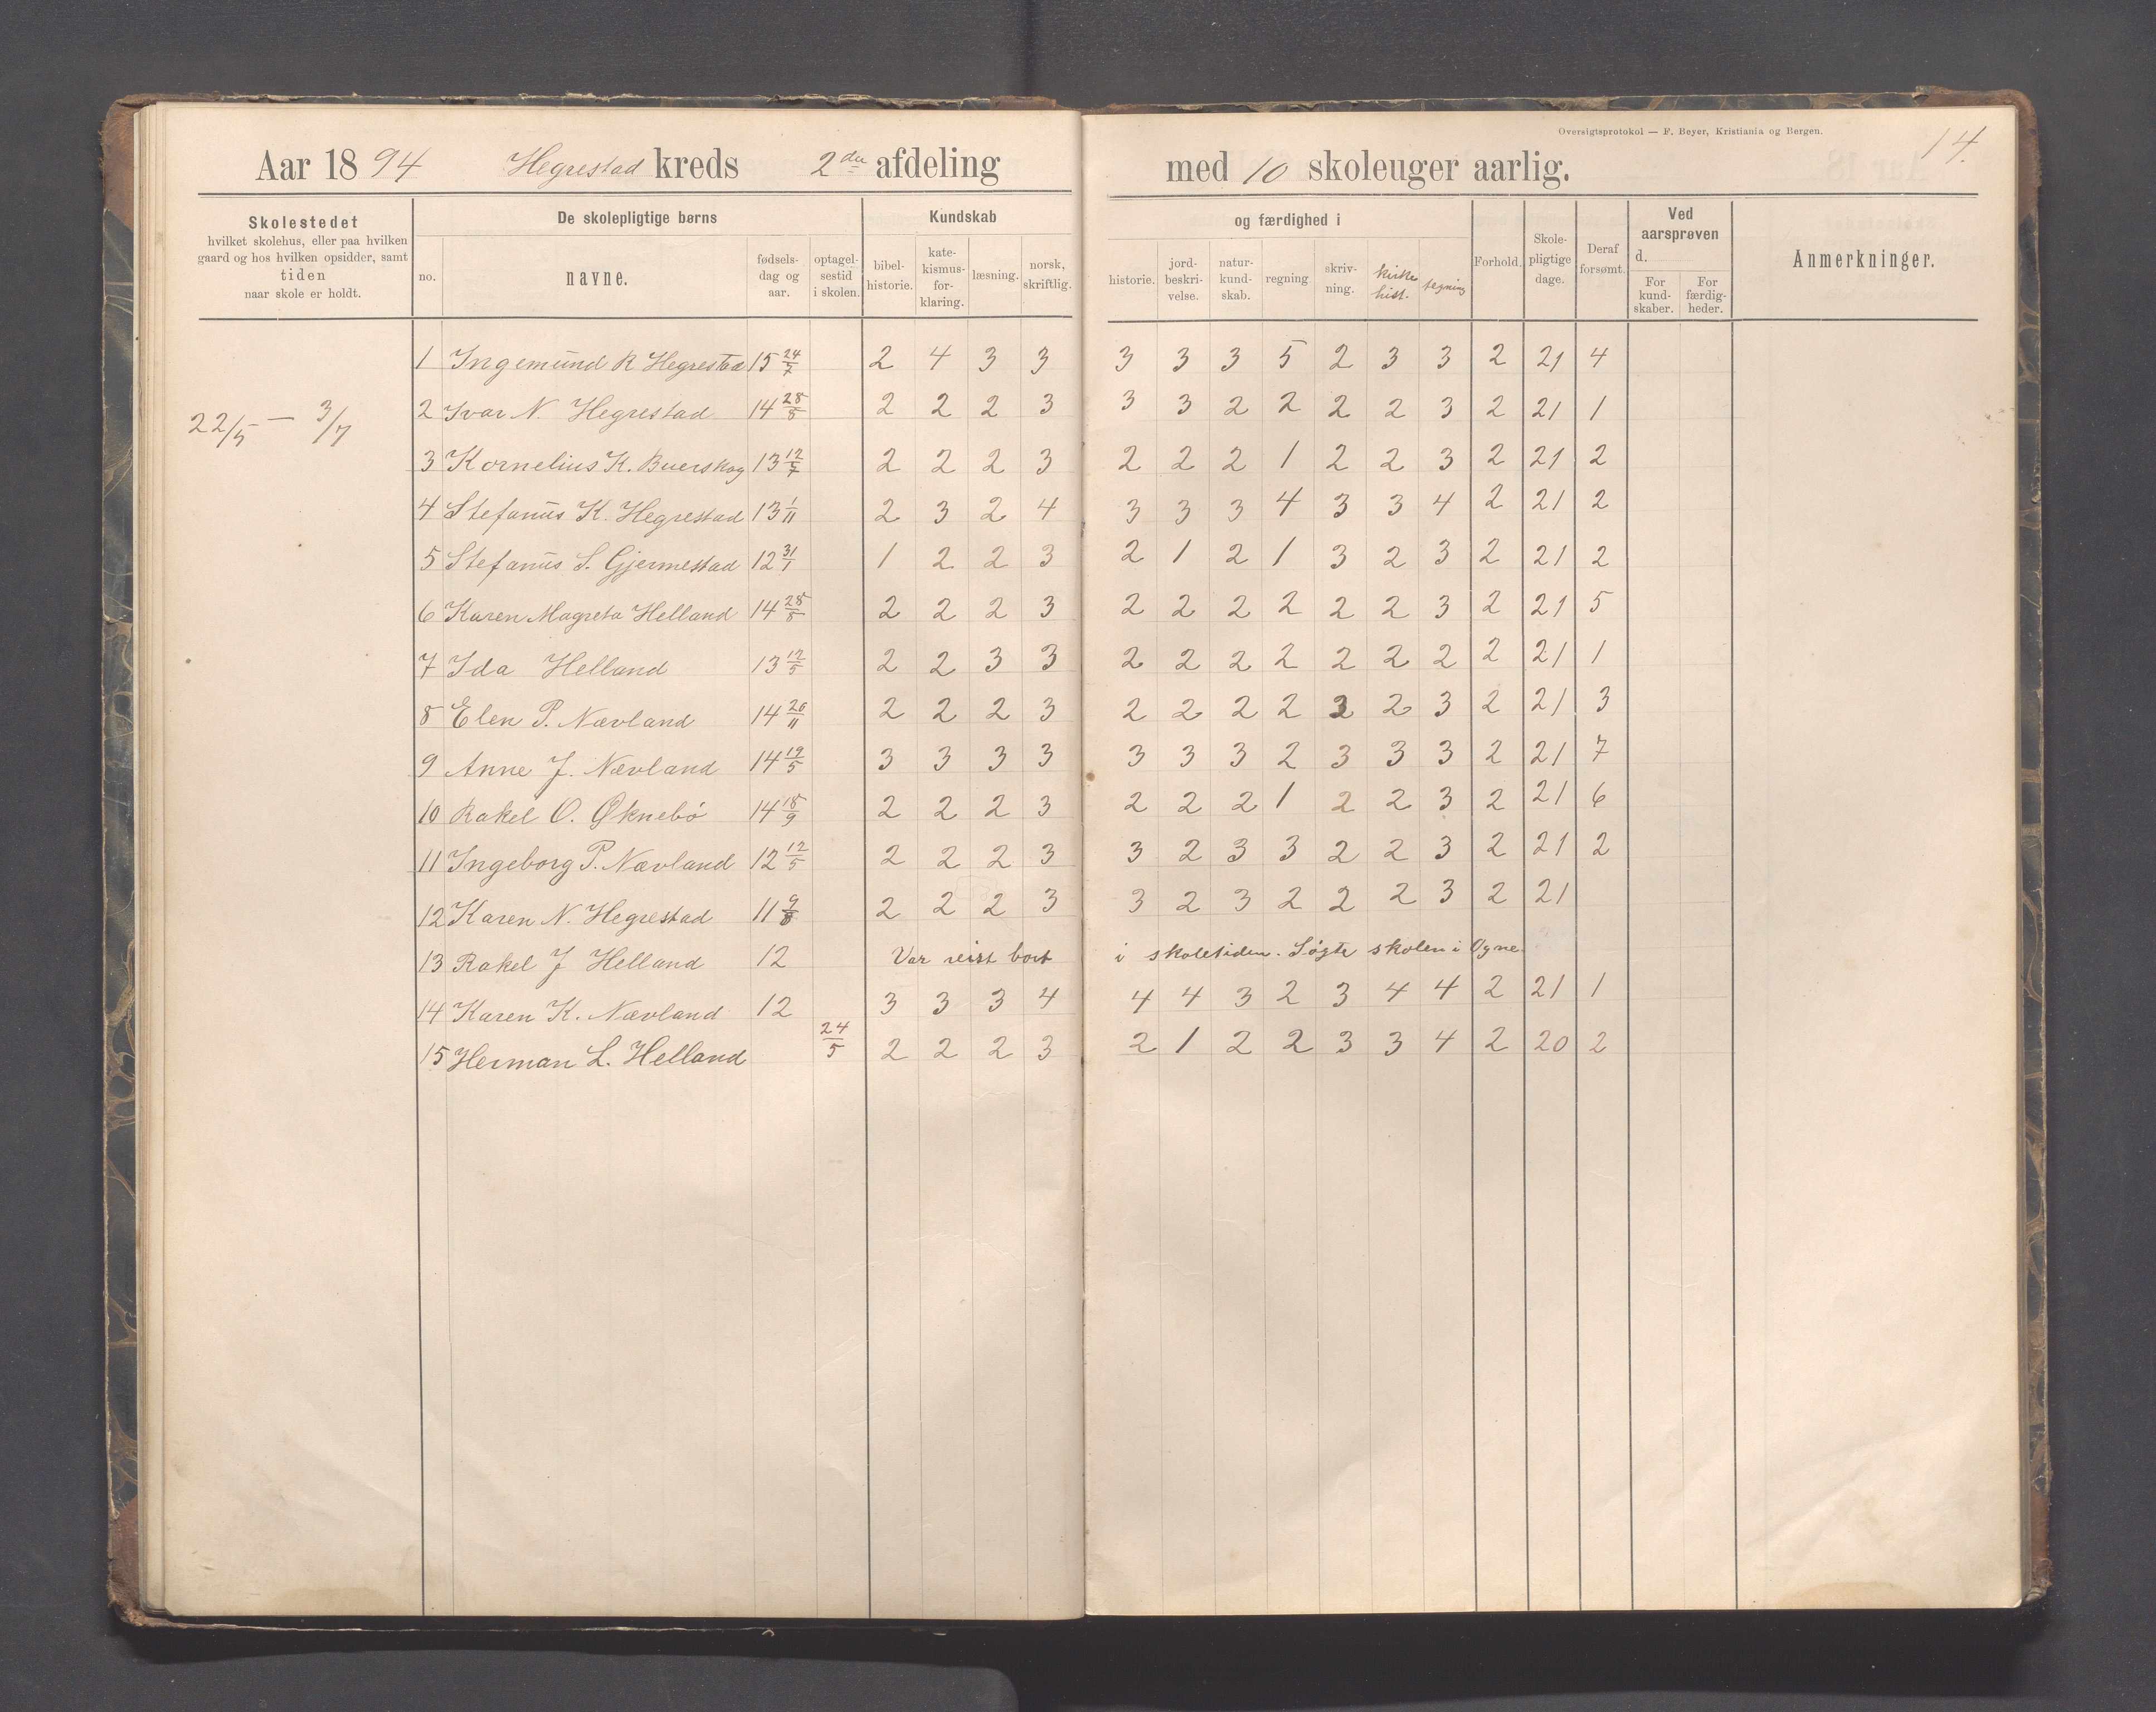 Oversigtsprotokol — F. Beyer, Kristiania og Bergen.
14.
Aar 1894 Hegrestad kreds 2den afdeling med 10 skoleuger aarlig.
Skolestedet
hvilket skolehus, eller paa hvilken
gaard og hos hvilken opsidder, samt
tiden
naar skole er holdt.
De skolepligtige børns
no.
navne.
fødsels-
dag og
aar.
optagel-
sestid
i skolen.
Kundskab
bibel-
historie.
kate-
kismus-
for-
klaring.
læsning.
norsk,
skriftlig.
og færdighed i
historie.
jord-
beskri-
velse.
natur-
kund-
skab.
regning
skriv-
ning.
kirke
hist.
tegning
Forhold.
Skole-
pligtige
dage.
Deraf
forsømt.
Ved
aarsprøven
d.
For
kund-
skaber.
For
færdig-
heder.
Anmerkninger.
22/5 — 3/7
1 Ingemund R Hegrestad 15 24/7 2 4 3 3 3 3 3 5 2 3 3 2 21 4
2 Ivar N. Hegrestad 14 28/8 2 2 2 3 3 3 2 2 2 2 3 2 21 1
3 Kornelius K. Buerskog 13 12/7 2 2 2 3 2 2 2 1 2 2 3 2 21 2
4 Stefanus K. Hegrestad 13 1/11 2 3 2 4 3 3 3 4 3 3 4 2 21 2
5 Stefanus S. Gjermestad 12 31/1 1 2 2 3 2 1 2 1 3 2 3 2 21 2
6 Karen Magreta Helland 14 28/8 2 2 2 3 2 2 2 2 2 2 3 2 21 5
7 Ida Helland 13 12/5 2 2 3 3 2 2 2 2 2 2 2 2 21 1
8 Elen P. Nævland 14 20/11 2 2 2 3 2 2 2 2 3 2 3 2 21 3
9 Anne J. Nævland 14 19/5 3 3 3 3 3 3 3 2 3 3 3 2 21 7
10 Rakel O. Øknebö 14 18/9 2 2 2 3 2 2 2 1 2 2 3 2 21 6
11 Ingeborg P. Nævland 12 12/5 2 2 2 3 3 2 3 3 2 2 3 2 21 2
12 Karen N. Hegrestad 11 9/8 2 2 2 3 3 2 3 2 2 2 3 2 21
13 Rakel J Helland 12 Var reist bort i skoletiden. Søgte skolen i Ogne.
14 Karen K. Nævland 12 3 3 3 4 4 4 3 2 3 4 4 2 21 1
15 Herman L. Helland 24/5 2 2 2 3 2 1 2 2 3 3 4 2 20 2